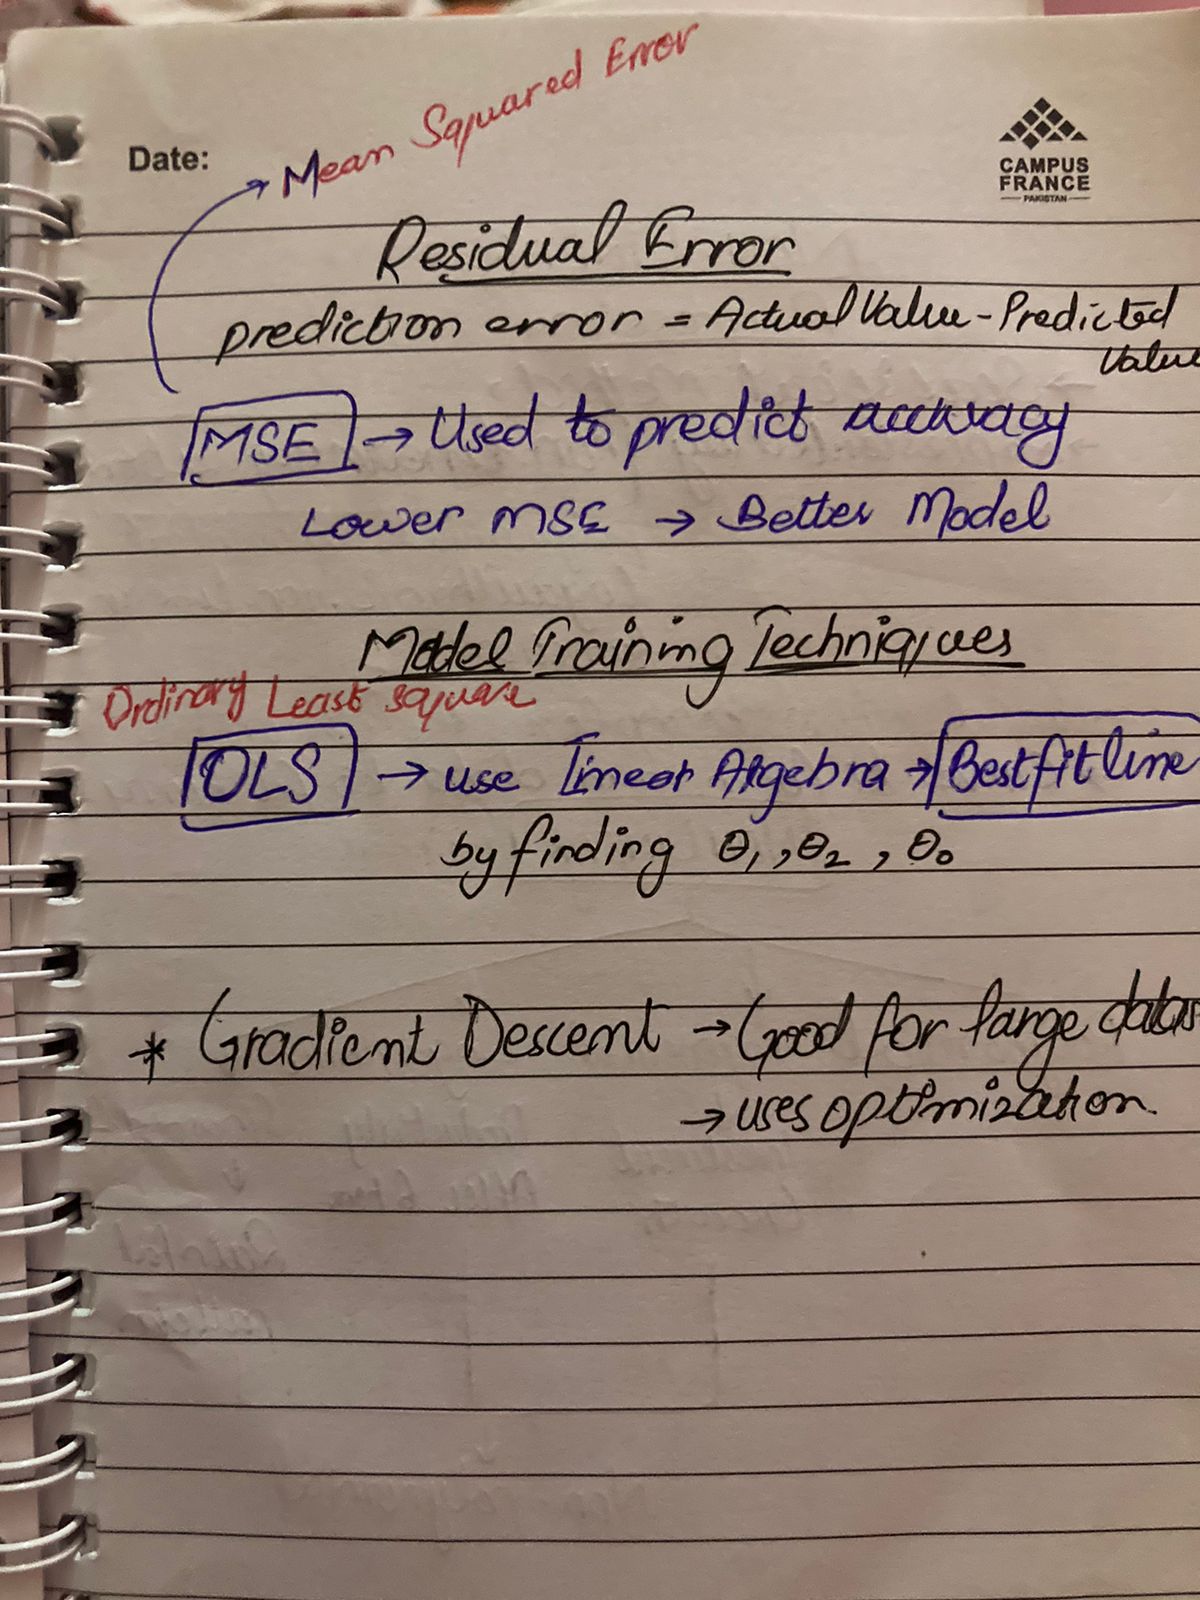 Mean Squared Error
Date:
CAMPUS
FRANCE
PAKISTAN
Residual Error
prediction error = Actual Value - Predicted
Value
MSE → Used to predict accuracy
Lower MSE → Better Model
Model Training Techniques
Ordinary Least square
OLS → use linear Algebra → Best fit line
by finding θ₁, θ₂, θ₀
* Gradient Descent → Good for large
→ uses optimization.